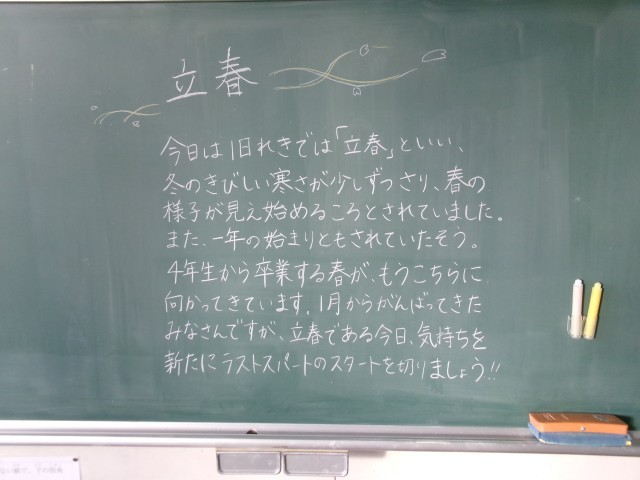 立春
今日は旧れきでは「立春」といい、
冬のきびしい寒さが少しずつさり、春の
様子が見え始めるころとされていました。
また、一年の始まりともされていたそう。
4年生から卒業する春が、もうこちらに
向かってきています。1月からがんばってきた
みなさんですが、立春である今日、気持ちを
新たにラストスパートのスタートを切りましょう!!